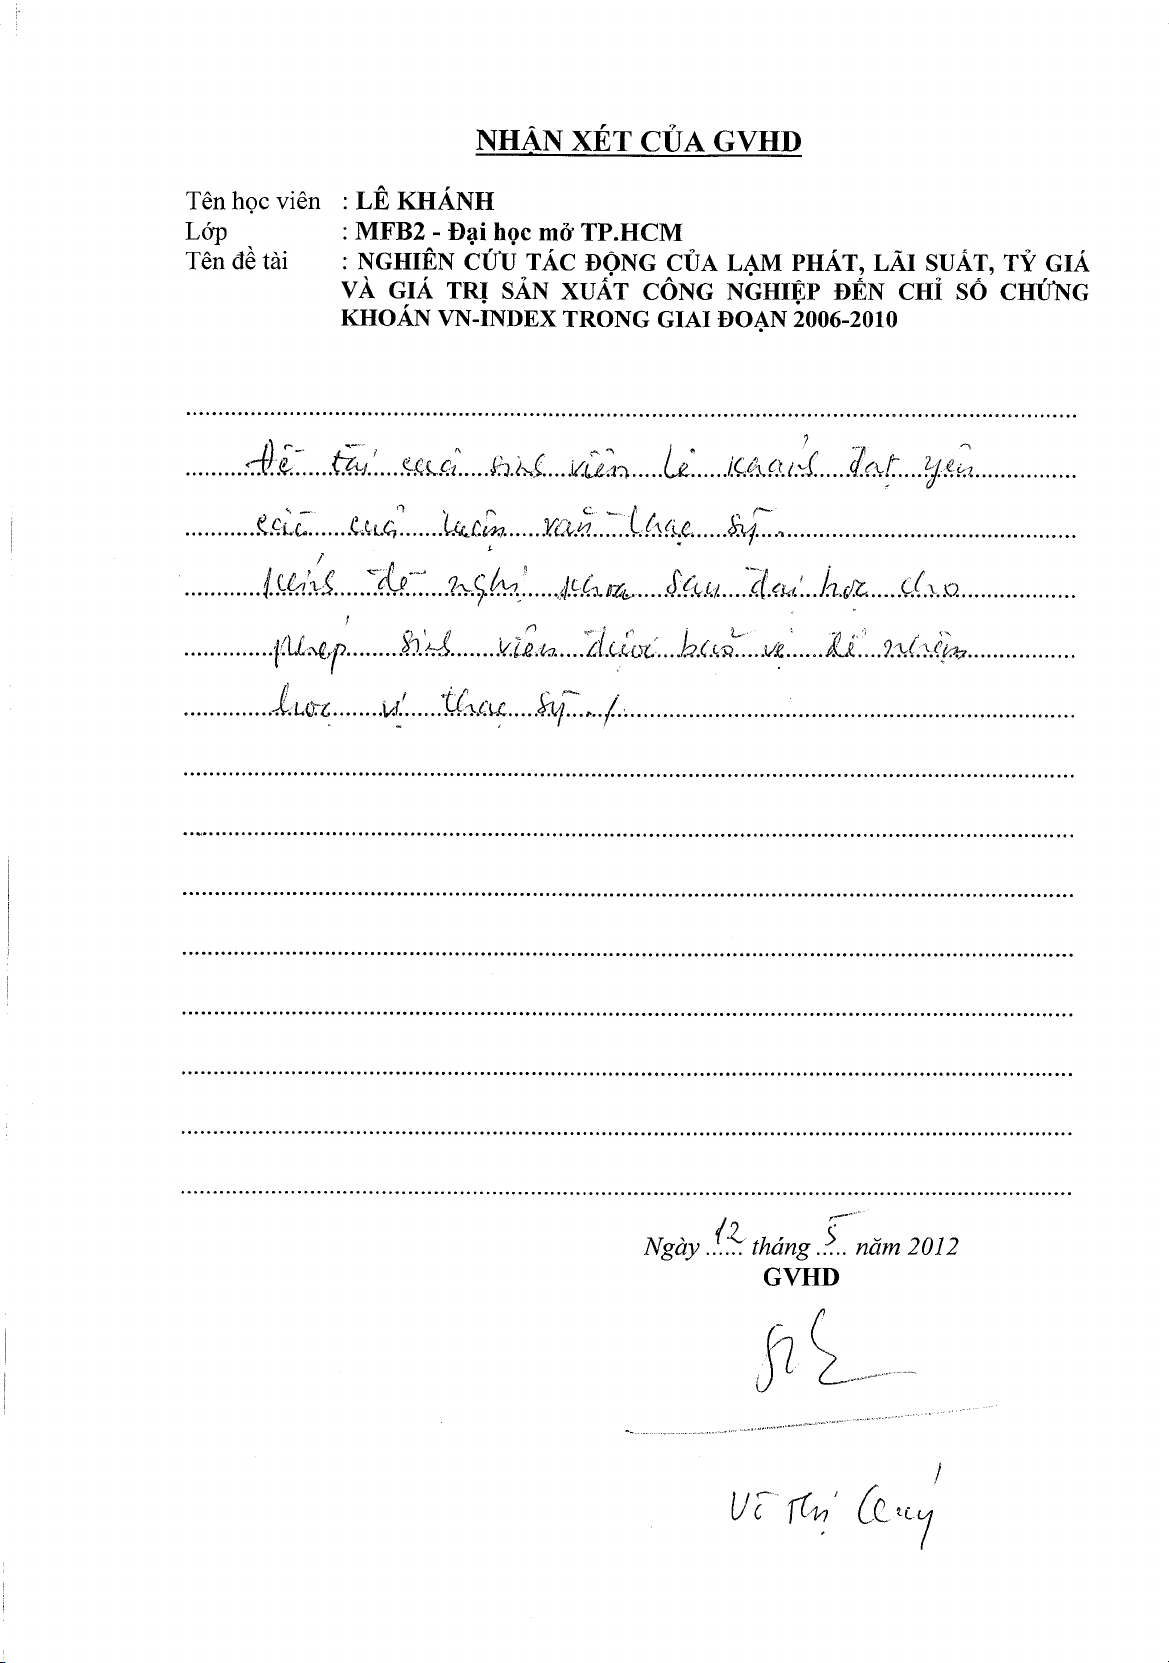 NHẬN XÉT CỦA GVHD
Tên học viên : LÊ KHÁNH
Lớp : MFB2 - Đại học mở TP.HCM
Tên đề tài : NGHIÊN CỨU TÁC ĐỘNG CỦA LẠM PHÁT, LÃI SUẤT, TỶ GIÁ
VÀ GIÁ TRỊ SẢN XUẤT CÔNG NGHIỆP ĐẾN CHỈ SỐ CHỨNG
KHOÁN VN-INDEX TRONG GIAI ĐOẠN 2006-2010
Đề tài của sinh viên Lê Khánh đạt yêu
cầu của luận văn thạc sỹ.
Kính đề nghị khoa sau đại học cho
phép sinh viên được bảo vệ để nhận
học vị thạc sỹ./.
Ngày 12 tháng 5 năm 2012
GVHD
Thị Quý